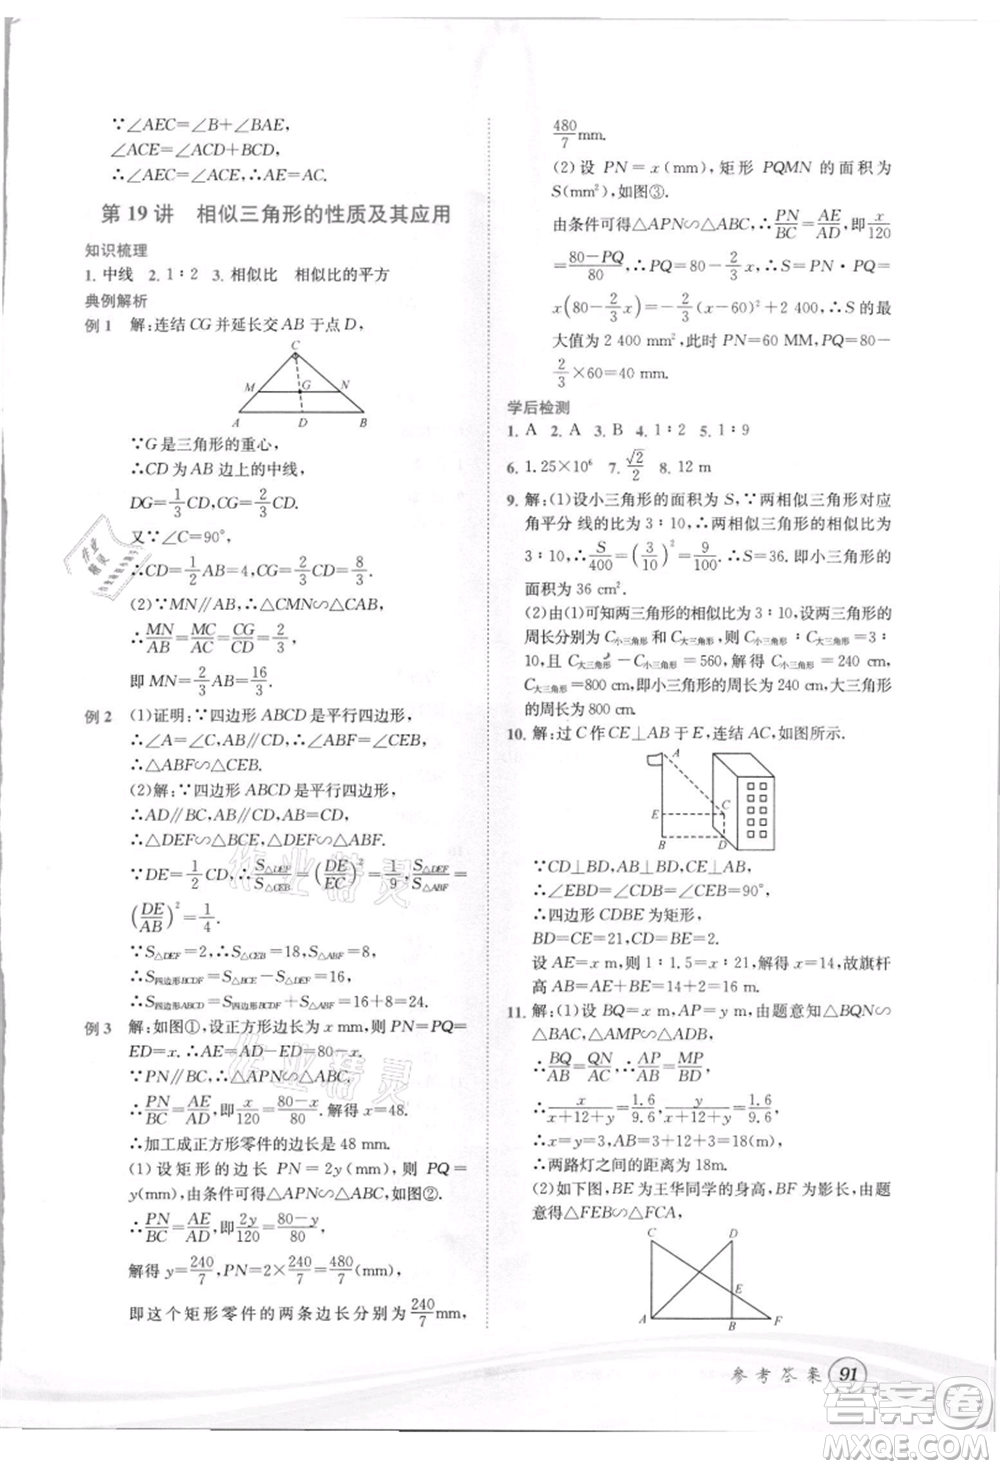 ∵∠AEC=∠B+∠BAE,
∠ACE=∠ACD+BCD,
∴∠AEC=∠ACE,∴AE=AC.
第 19 讲 相似三角形的性质及其应用
知识梳理
1. 中线 2. 1∶2 3. 相似比 相似比的平方
典例解析
例 1 解:连结 CG 并延长交 AB 于点 D,
C
M G N
A D B
∵G 是三角形的重心,
∴CD 为 AB 边上的中线,
DG=1/3CD,CG=2/3CD.
又∵∠C=90°,
∴CD=1/2AB=4,CG=2/3CD=8/3.
(2)∵MN∥AB,∴△CMN∽△CAB,
∴MN/AB=MC/AC=CG/CD=2/3.
即 MN=2/3AB=16/3.
例 2 (1)证明:∵四边形 ABCD 是平行四边形,
∴∠A=∠C,AB∥CD,∴∠ABF=∠CEB,
∴△ABF∽△CEB.
(2)解:∵四边形 ABCD 是平行四边形,
∴AD∥BC,AB∥CD,
∴△DEF∽△BCE,△DEF∽△ABF.
∵DE=1/2CD,∴S△DEF/S△CEB=(DE/EC)²=1/9,S△DEF/S△ABF=
(DE/AB)²=1/4.
∵S△DEF=2,∴S△CEB=18,S△ABF=8,
∴S四边形BCDF=S△BCE-S△DEF=16,
∴S四边形ABCD=S四边形BCDF+S△ABF=16+8=24.
例 3 解:如图①,设正方形边长为 x mm,则 PN=PQ=
ED=x.∴AE=AD-ED=80-x.
∵PN∥BC,∴△APN∽△ABC.
∴PN/BC=AE/AD,即x/120=80-x/80.解得 x=48.
∴加工成正方形零件的边长是 48 mm.
(1)设矩形的边长 PN=2y(mm),则 PQ=
y(mm),由条件可得△APN∽△ABC,如图②.
∴PN/BC=AE/AD,即2y/120=80-y/80,
解得 y=240/7,PN=2×240/7=480/7(mm),
即这个矩形零件的两条边长分别为240/7mm,
480/7mm.
(2)设 PN=x(mm),矩形 PQMN 的面积为
S(mm²),如图③,
由条件可得△APN∽△ABC,∴PN/BC=AE/AD,即x/120
=80-PQ/80.解得 PQ=80-2/3x.∴S=PN·PQ=
x(80-2/3x)=-2/3(x-60)²+2 400,∴S 的最
大值为 2 400 mm²,此时 PN=60 MM,PQ=80-
2/3×60=40 mm.
学后检测
1. A 2. A 3. B 4. 1∶2 5. 1∶9
6. 1.25×10⁶ 7. √2/2 8. 12 m
9. 解:(1)设小三角形的面积为 S,∵两相似三角形对应
角平分 线的比为 3∶10,∴两相似三角形的相似比
3∶10,∴S/400=(3/10)²=9/100.∴S=36.即小三角形的
面积为 36 cm².
(2)由(1)可知两三角形的相似比为 3∶10,设两三角形的
周长分别为 C小三角形 和 C大三角形,则 C小三角形∶C大三角形=3∶
10,且 C大三角形-C小三角形=560,解得=240 cm,
C大三角形=800 cm,即小三角形的周长为 240 cm,大三角形
的周长为 800 cm.
10. 解:过 C 作 CE⊥AB 于 E,连结 AC,如图所示.
A
E C
B D
∵CD⊥BD,AB⊥BD,CE⊥AB,
∴∠EBD=∠CDB=∠CEB=90°,
∴四边形 CDBE 为矩形,
BD=CE=21,CD=BE=2.
设 AE=x m,则 1∶1.5=x∶21,解得 x=14,故旗杆
高 AB=AE+BE=14+2=16(m).
11. 解:(1)设 BQ=x m,AP=y m,由题意知△BQN∽
△BAC,△AMP∽△ABD,
∴BQ/AB=QN/AC,∴AP/AB=MP/BD,
∴x/x+12+y=1.6/9.6,y/x+12+y=1.6/9.6
∴x=y=3,AB=3+12+3=18(m).
∴两路灯之间的距离为 18m.
(2)如下图,BE 为王华同学的身高,BF 为影长,由题
意得△FEB∽△FCA,
C D
E
A B F
参考答案 91
作业精灵
作业精灵
作业精灵
答案圈
MXQE.COM